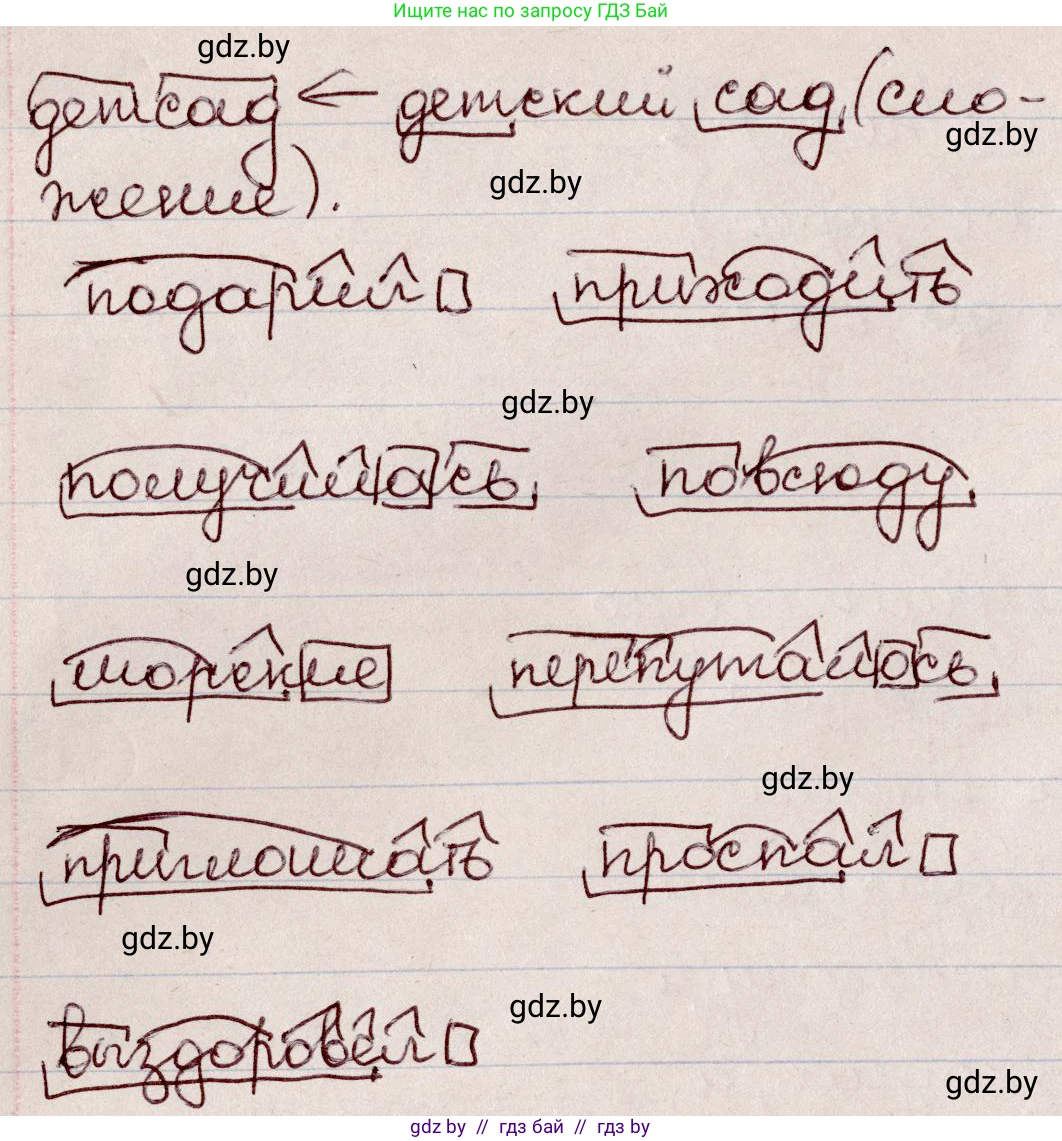 Ищите нас по запросу ГДЗ Бай
gdz.by
детсад ← детский сад (сло-
gdz.by
жение).
gdz.by
подарил приходить
gdz.by
получилась повсюду
gdz.by
морские перепуталось
gdz.by
приглашать проспал
gdz.by
gdz.by
выздоровел
gdz.by
gdz by // гдз бай // gdz by